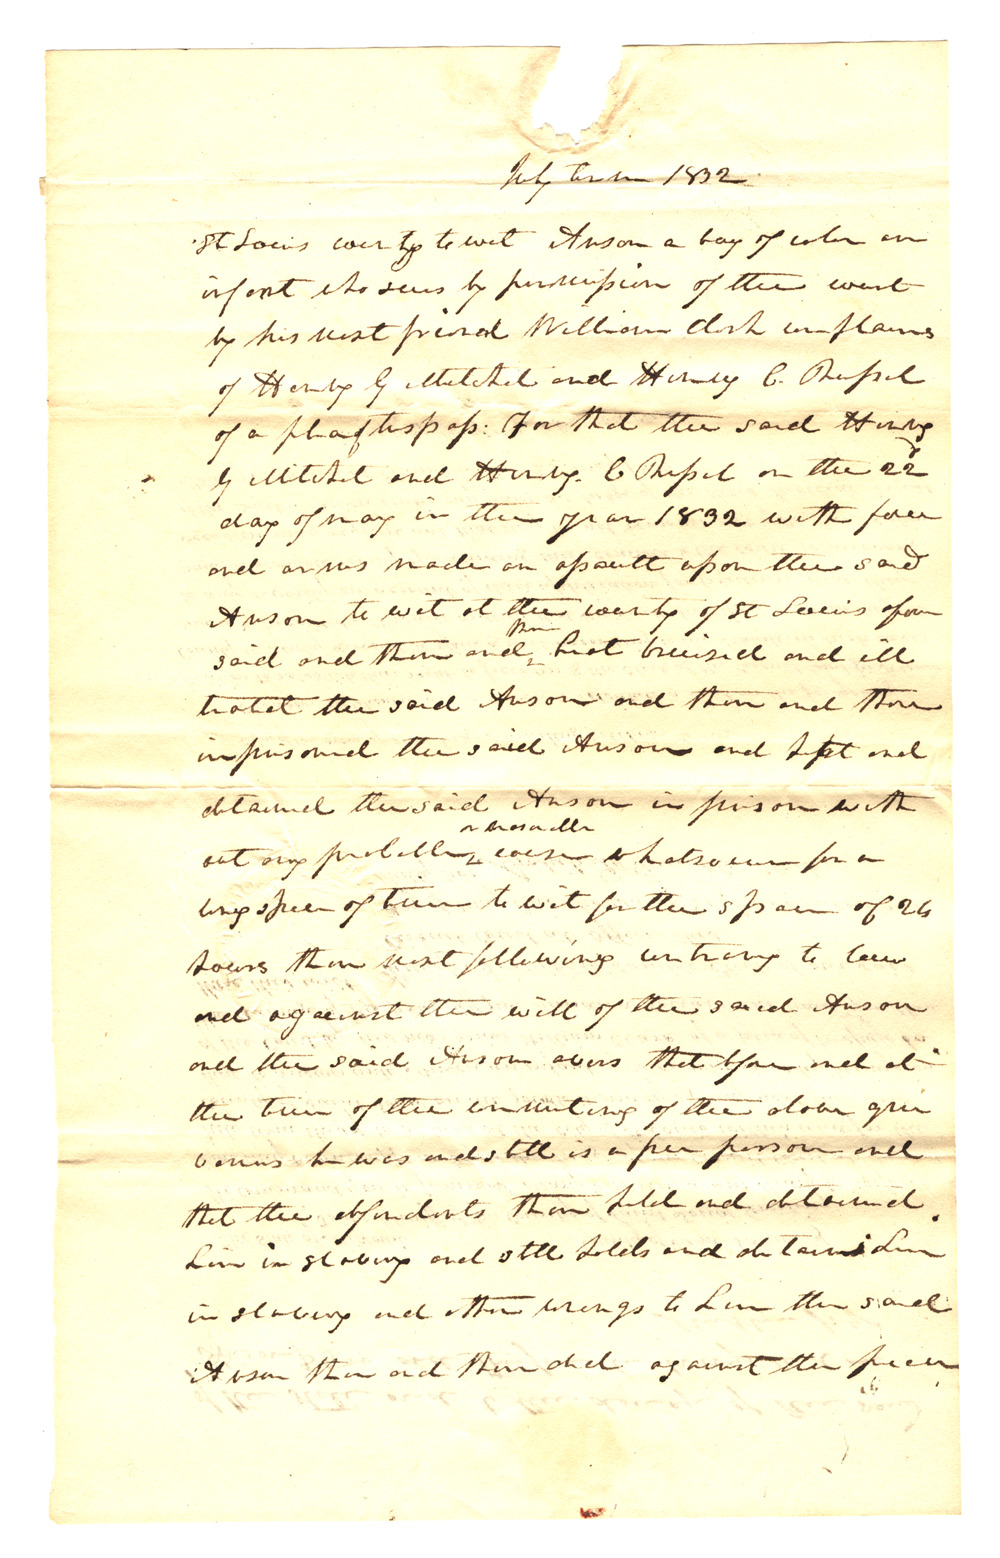 July term 1832
St Louis county to wit Anson a boy of color an
infant who sues by permission of the court
by his next friend William Clark complains
of Henry G Mitchel and Henry C. Russel
of a plea of trespass: For that the said Henry
G Mitchel and Henry. C Russel on the 22d
day of may in the year 1832 with force
and arms made an assault upon the said
Anson to wit at the county of St Louis afore
said and then and there beat bruised and ill
treated the said Anson and then and there
imprisoned the said Anson and kept and
detained the said Anson in prison with
out any probable or reasonable cause whatsoever for a
long space of time to wit for the space of 24
hours then next following contrary to law
and against the will of the said Anson
and the said Anson avers that before and at
the time of the committing of the above grie
vances he was and still is a free person and
that the defendants then held and detained
him in slavery and still holds and detains him
in slavery and other wrongs to him the said
Anson then and there did against the peace